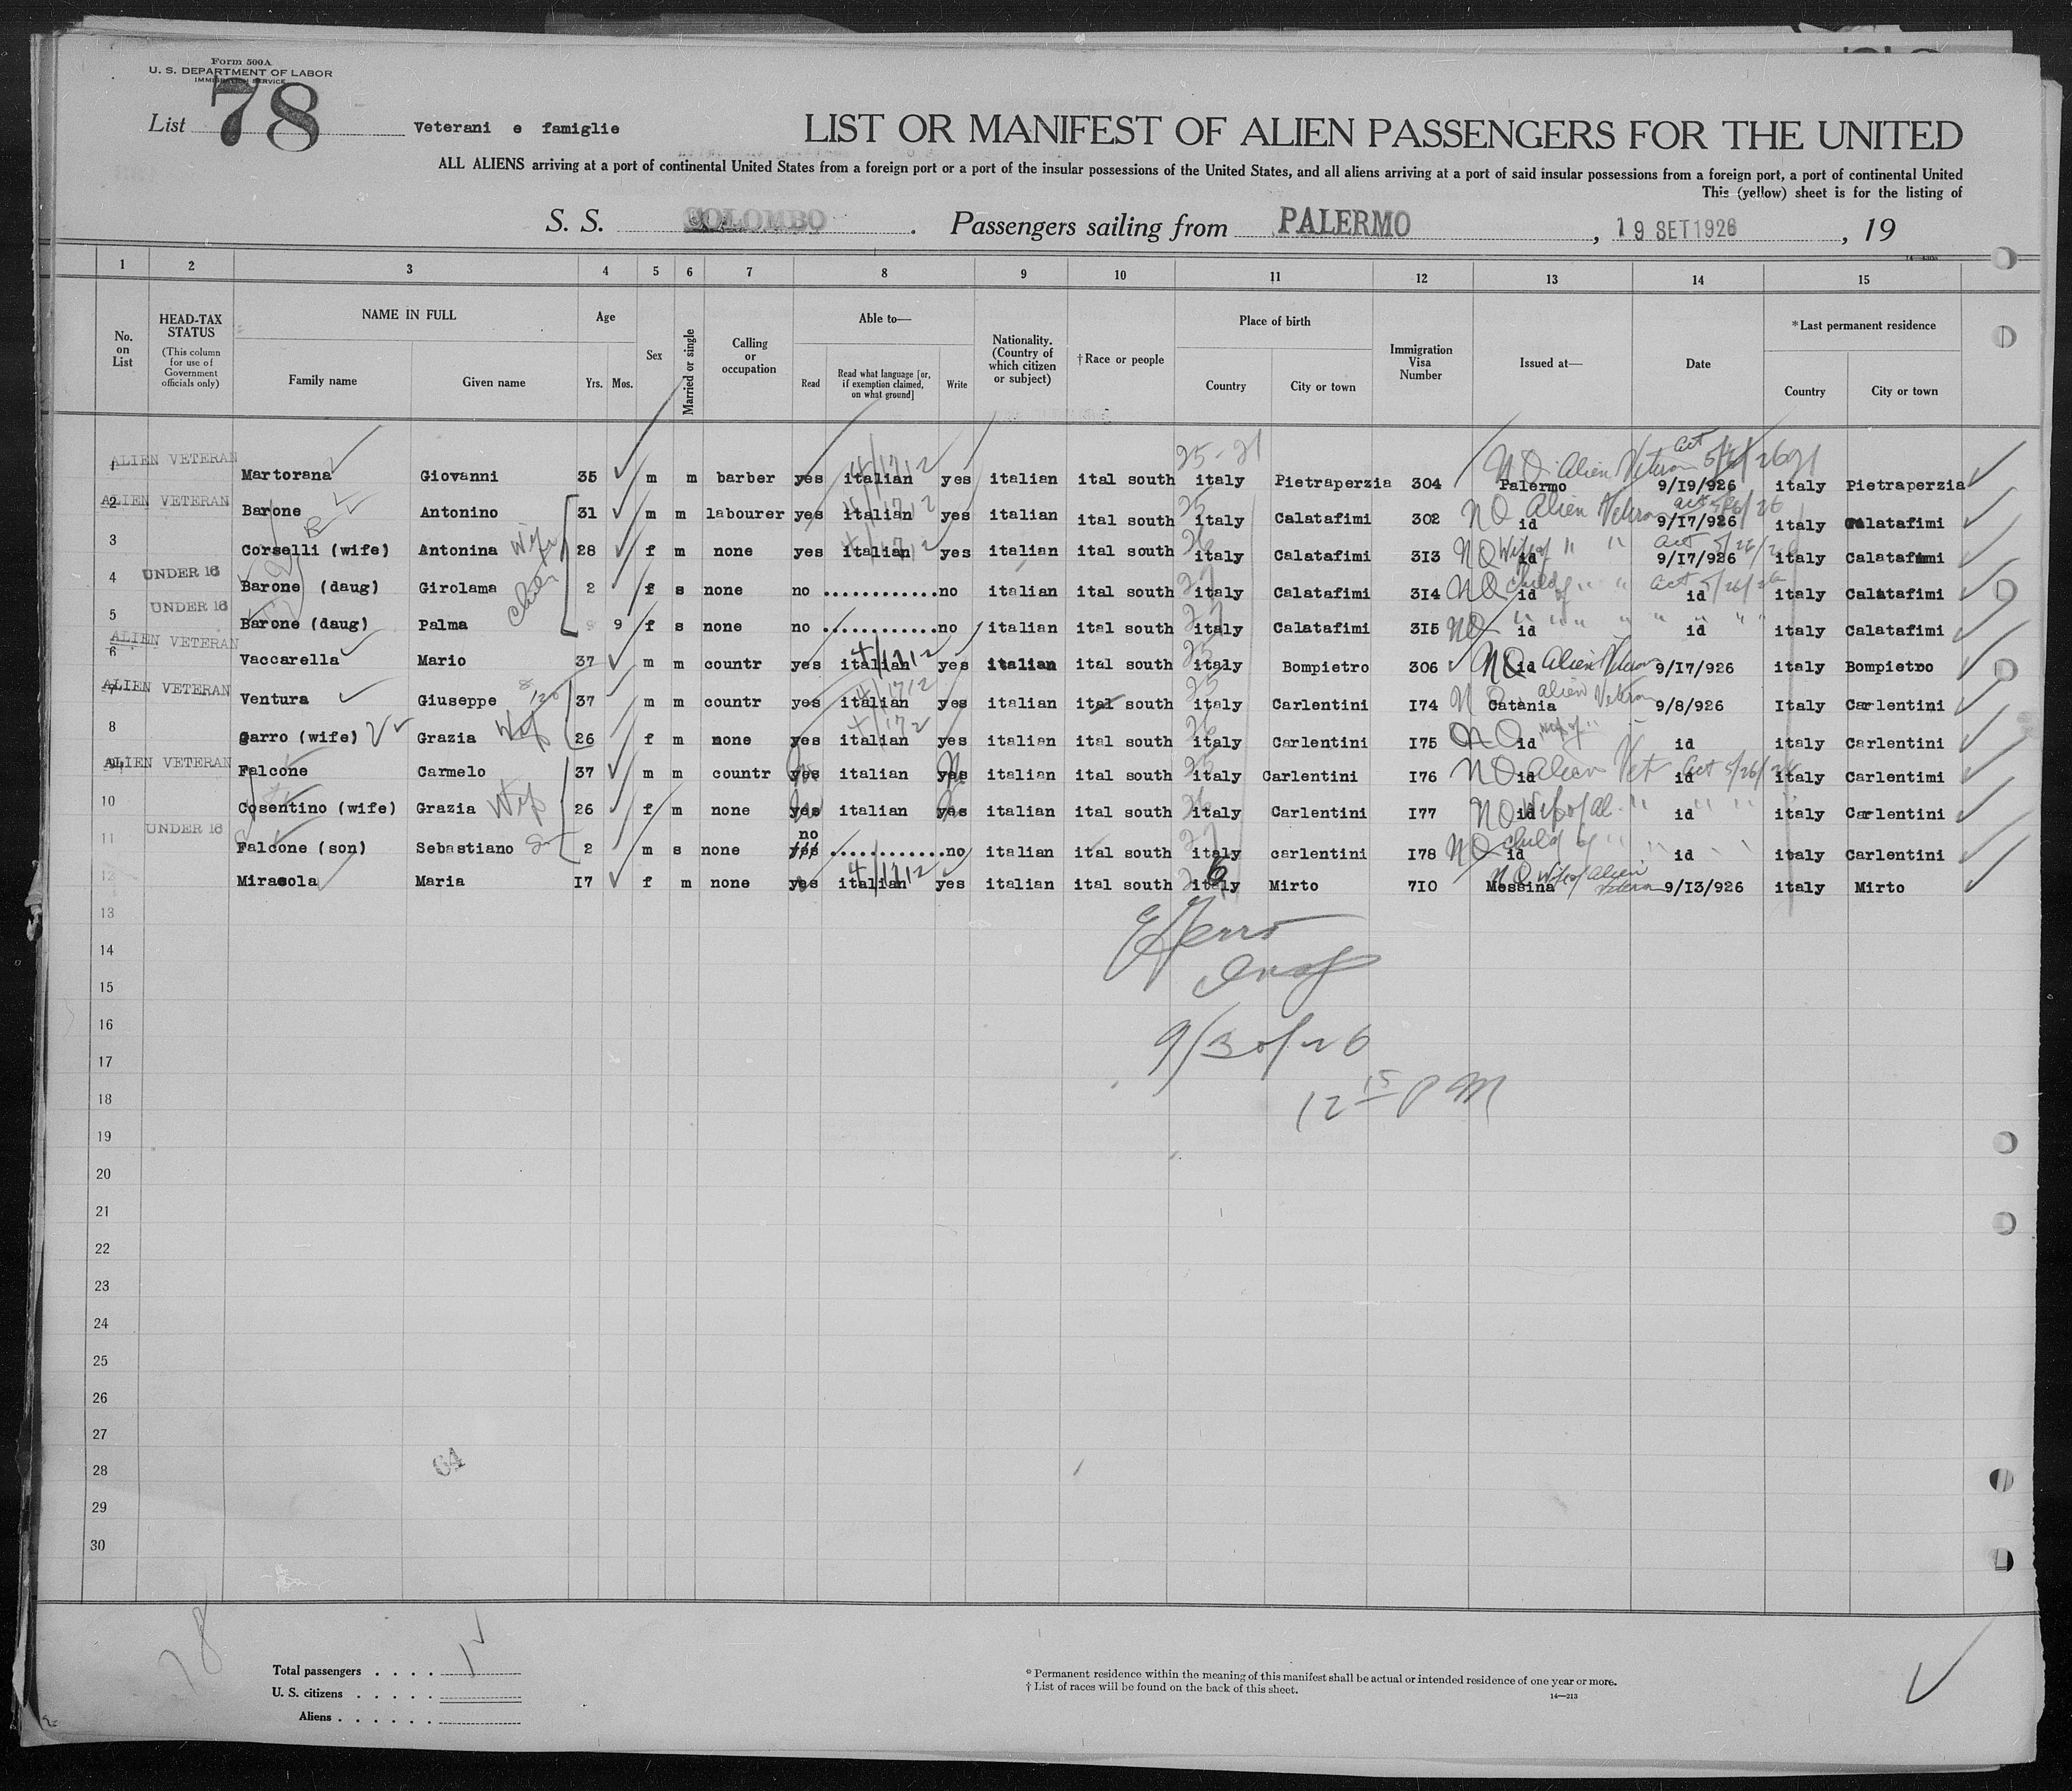 Form 500A
U. S. DEPARTMENT OF LABOR
IMMIGRATION SERVICE
List 78 Veterani e famiglie LIST OR MANIFEST OF ALIEN PASSENGERS FOR THE UNITED
ALL ALIENS arriving at a port of continental United States from a foreign port or a port of the insular possessions of the United States, and all aliens arriving at a port of said insular possessions from a foreign port, a port of continental United
This (yellow) sheet is for the listing of
S. S. COLOMBO . Passengers sailing from PALERMO , 19 SET 1926 , 19
1 2 3 4 5 6 7 8 9 10 11 12 13 14 15
No. on List
HEAD-TAX STATUS (This column for use of Government officials only)
NAME IN FULL Family name Given name
Age Yrs. Mos.
Sex
Married or single
Calling or occupation
Able to— Read Read what language [or, if exemption claimed, on what ground] Write
Nationality. (Country of which citizen or subject)
†Race or people
Place of birth Country City or town
Immigration Visa Number
Issued at—
Date
*Last permanent residence Country City or town
25-21
1 ALIEN VETERAN Martorana Giovanni 35 m m barber yes italian 4/1712 yes italian ital south italy Pietraperzia 304 NQ Alien Veteran act 5/26/26 Palermo 9/19/926 italy Pietraperzia
2 ALIEN VETERAN Barone Antonino 31 m m labourer yes italian 4/1712 yes italian ital south 25 italy Calatafimi 302 NQ Alien Veteran act 5/26/26 id 9/17/926 italy Calatafimi
3 Corselli (wife) Antonina Wife 28 f m none yes italian 4/1712 yes italian ital south 26 italy Calatafimi 313 NQ Wife of " " act 5/26/26 id 9/17/926 italy Calatafimi
4 UNDER 16 Barone (daug) Girolama 2 f s none no ............no italian ital south 27 italy Calatafimi 314 NQ Child of " " act 5/26/26 id id italy Calatafimi
5 UNDER 16 Barone (daug) Palma 9 f s none no ............no italian ital south 27 italy Calatafimi 315 NQ " " " " id id italy Calatafimi
6 ALIEN VETERAN Vaccarella Mario 37 m m countr yes italian 4/1712 yes italian ital south 25 italy Bompietro 306 NQ Alien Veteran id 9/17/926 italy Bompietro
7 ALIEN VETERAN Ventura Giuseppe 37 m m countr yes italian 4/1712 yes italian ital south 25 italy Carlentini 174 N Alien Veteran Catania 9/8/926 Italy Carlentini
8 Garro (wife) Grazia Wife 26 f m none yes italian yes italian ital south 26 italy Carlentini 175 NQ Wife of " id id italy Carlentini
9 ALIEN VETERAN Falcone Carmelo 37 m m countr yes italian yes italian ital south 25 italy Carlentini 176 NQ Alien Vet act 5/26/26 id id italy Carlentimi
10 Cosentino (wife) Grazia Wife 26 f m none yes italian yes italian ital south 26 italy Carlentini 177 NQ Wife of Al. " " " id id italy Carlentini
11 UNDER 16 Falcone (son) Sebastiano 2 m s none no yes ............no italian ital south 27 italy carlentini 178 NQ Child of " id id italy Carlentini
12 Mirasola Maria 17 f m none yes italian 4/1712 yes italian ital south 26 italy Mirto 710 NQ Wife of Alien Veteran Messina 9/13/926 italy Mirto
13
14
15
16
9/30/26
17
18
12 15 PM
19
20
21
22
23
24
25
26
27
28
64
29
30
78
Total passengers . . . .
U. S. citizens . . . . .
Aliens . . . . . .
* Permanent residence within the meaning of this manifest shall be actual or intended residence of one year or more.
† List of races will be found on the back of this sheet.
14—213